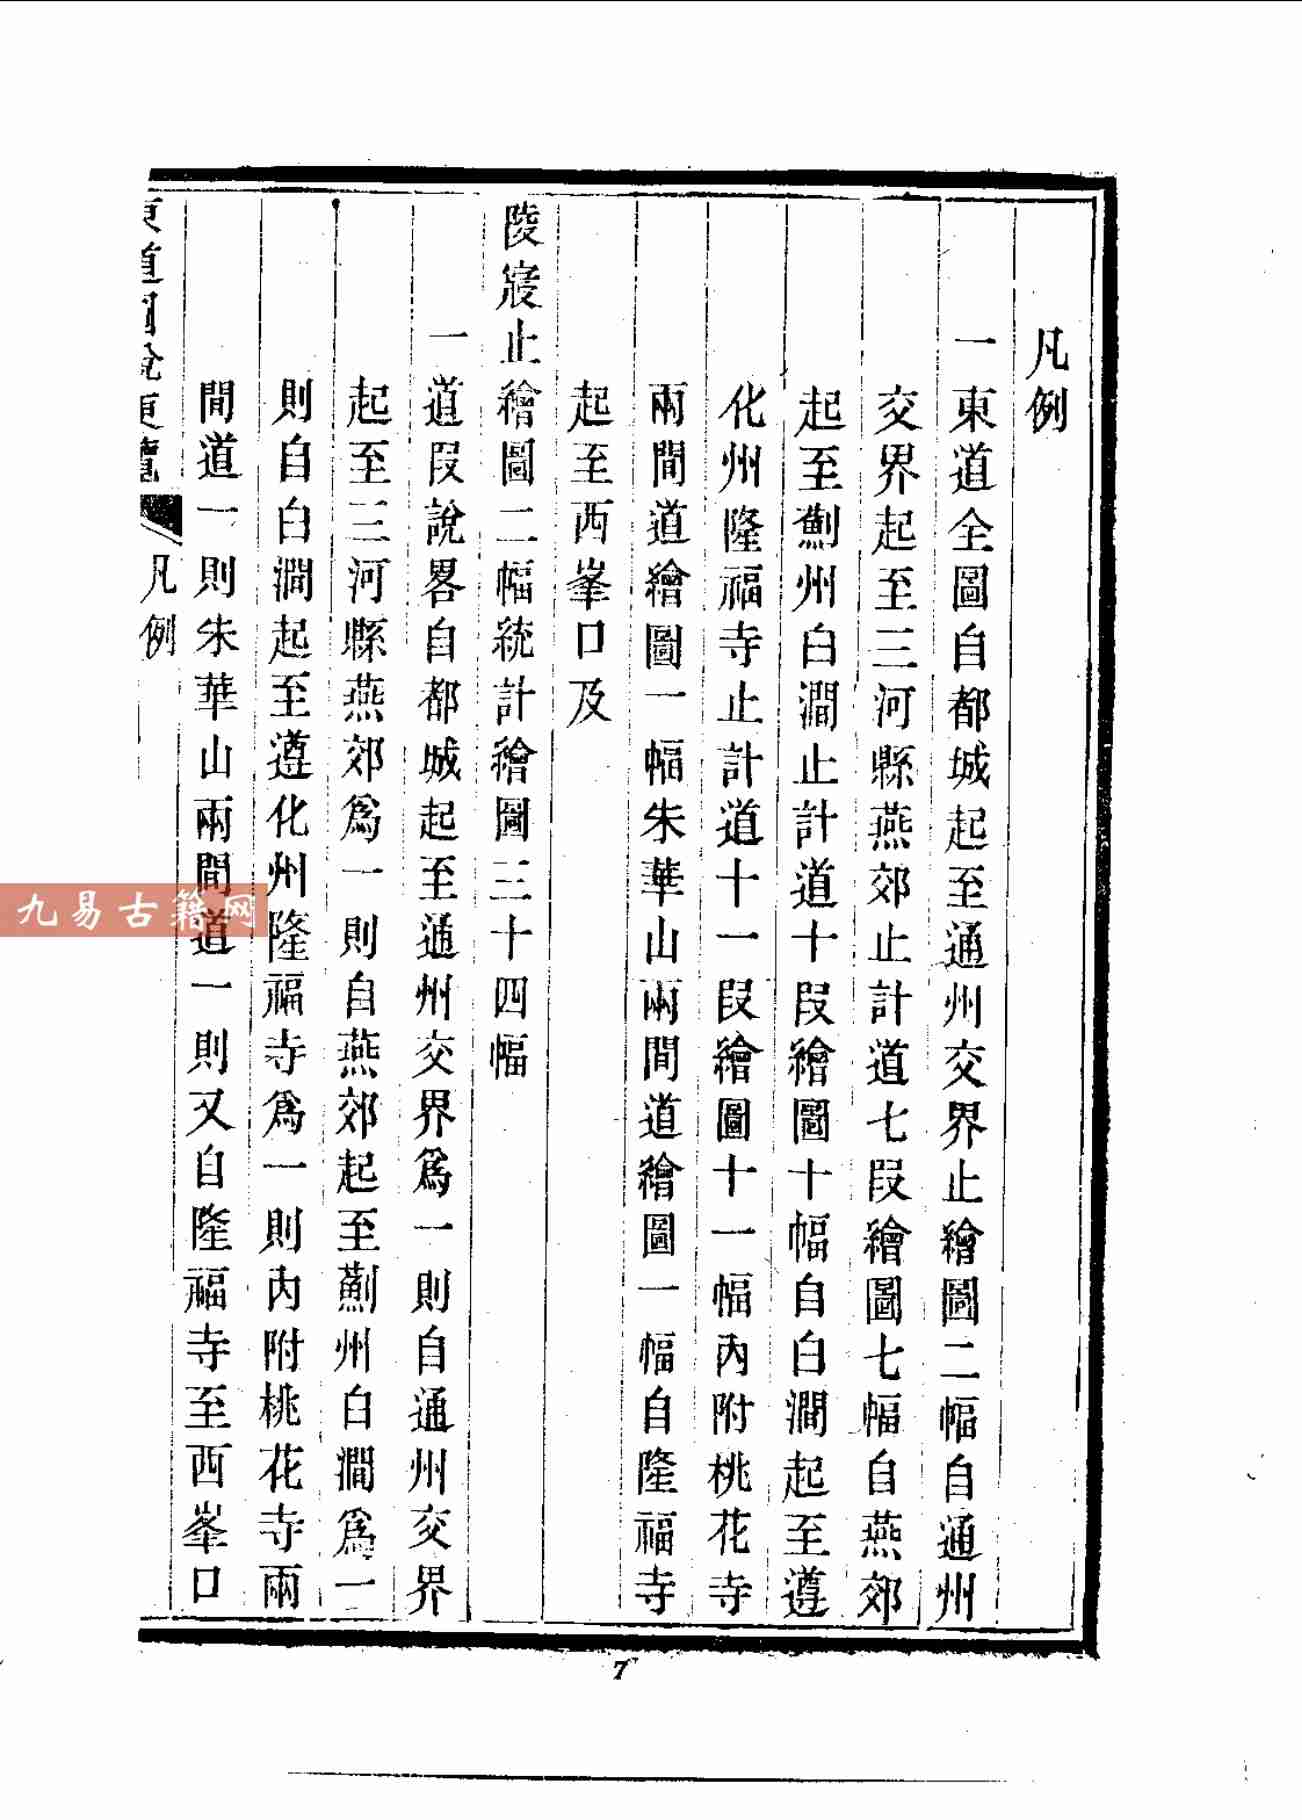 凡例
一東道全圖自都城起至通州交界止繪圖二幅自通州
交界起至三河縣燕郊止計道七段繪圖七幅自燕郊
起至薊州白澗止計道十段繪圖十幅自白澗起至遵
化州隆福寺止計道十一段繪圖十一幅內附桃花寺
兩間道繪圖一幅朱華山兩間道繪圖一幅自隆福寺
起至西峯口及
陵寢止繪圖二幅統計繪圖三十四幅
一道段說畧自都城起至通州交界爲一則自通州交界
起至三河縣燕郊爲一則自燕郊起至薊州白澗爲一
則自白澗起至遵化州隆福寺爲一則內附桃花寺兩
間道一則朱華山兩間道一則又自隆福寺至西峯口
東道圖說便覽 凡例
九易古籍网
7